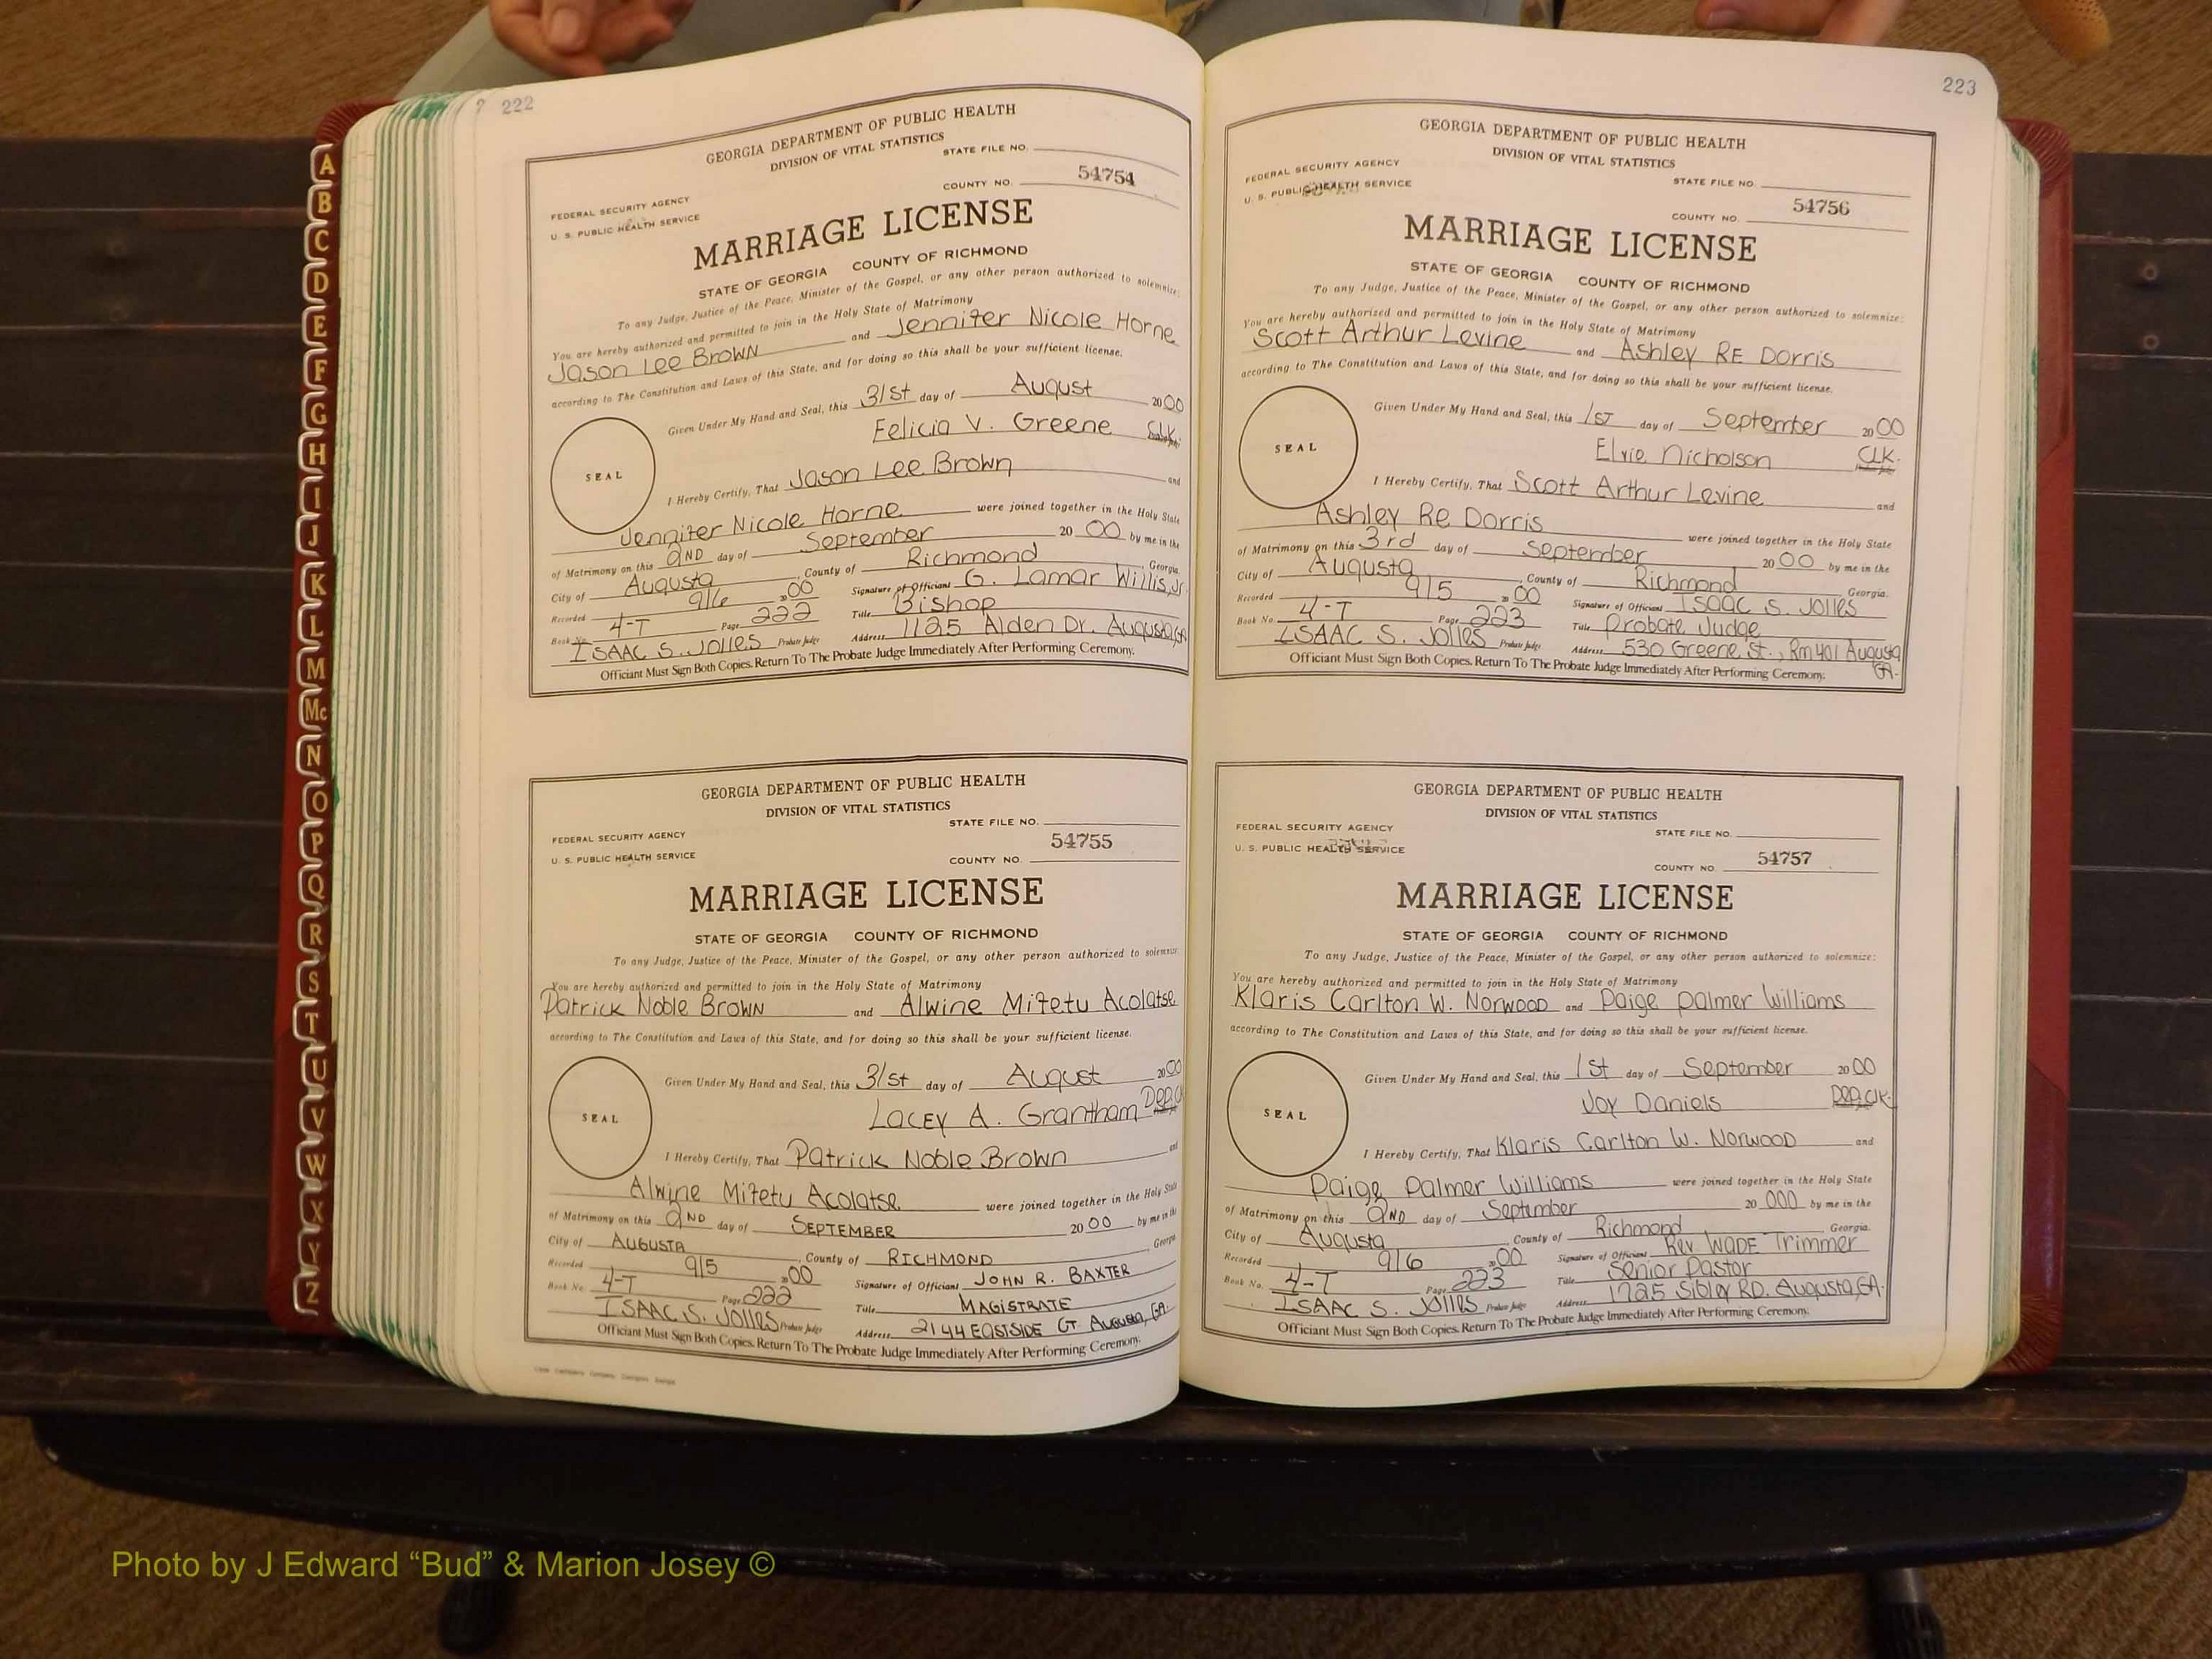 222
GEORGIA DEPARTMENT OF PUBLIC HEALTH
DIVISION OF VITAL STATISTICS
STATE FILE NO.
54754
COUNTY NO.
FEDERAL SECURITY AGENCY
U. S. PUBLIC HEALTH SERVICE
MARRIAGE LICENSE
STATE OF GEORGIA COUNTY OF RICHMOND
To any Judge, Justice of the Peace, Minister of the Gospel, or any other person authorized to solemnize:
You are hereby authorized and permitted to join in the Holy State of Matrimony
Jason Lee Brown and Jennifer Nicole Horne
according to The Constitution and Laws of this State, and for doing so this shall be your sufficient license.
Given Under My Hand and Seal, this 31st day of August 2000
Felicia V. Greene Clk.
SEAL
I Hereby Certify, That Jason Lee Brown and
Jennifer Nicole Horne were joined together in the Holy State
of Matrimony on this 2ND day of September 20 00 by me in the
City of Augusta, County of Richmond, Georgia.
Recorded 9/6 2000 Signature of Officiant G. Lamar Willis, Jr
Book No. 4-T Page 222 Title Bishop
ISAAC S. Jolles Probate Judge Address 1125 Alden Dr. Augusta, GA
Officiant Must Sign Both Copies. Return To The Probate Judge Immediately After Performing Ceremony.
GEORGIA DEPARTMENT OF PUBLIC HEALTH
DIVISION OF VITAL STATISTICS
STATE FILE NO.
54755
COUNTY NO.
FEDERAL SECURITY AGENCY
U. S. PUBLIC HEALTH SERVICE
MARRIAGE LICENSE
STATE OF GEORGIA COUNTY OF RICHMOND
To any Judge, Justice of the Peace, Minister of the Gospel, or any other person authorized to solemnize:
You are hereby authorized and permitted to join in the Holy State of Matrimony
Patrick Noble Brown and Alwine Mifetu Acolatse
according to The Constitution and Laws of this State, and for doing so this shall be your sufficient license.
Given Under My Hand and Seal, this 31st day of August 2000
Lacey A. Grantham Dep. C
SEAL
I Hereby Certify, That Patrick Noble Brown and
Alwine Mifetu Acolatse were joined together in the Holy State
of Matrimony on this 2ND day of SEPTEMBER 20 00 by me in the
City of AUGUSTA, County of RICHMOND, Georgia
Recorded 9/5 2000 Signature of Officiant JOHN R. BAXTER
Book No. 4-T Page 222 Title MAGISTRATE
ISAAC S. Jolles Probate Judge Address 2144 EASTSIDE CT. AUGUSTA, GA.
Officiant Must Sign Both Copies. Return To The Probate Judge Immediately After Performing Ceremony.
223
GEORGIA DEPARTMENT OF PUBLIC HEALTH
DIVISION OF VITAL STATISTICS
FEDERAL SECURITY AGENCY
U. S. PUBLIC HEALTH SERVICE
STATE FILE NO.
54756
COUNTY NO.
MARRIAGE LICENSE
STATE OF GEORGIA COUNTY OF RICHMOND
To any Judge, Justice of the Peace, Minister of the Gospel, or any other person authorized to solemnize:
You are hereby authorized and permitted to join in the Holy State of Matrimony
Scott Arthur Levine and Ashley RE Dorris
according to The Constitution and Laws of this State, and for doing so this shall be your sufficient license.
Given Under My Hand and Seal, this 1ST day of September 2000
Elvie Nicholson Clk.
SEAL
I Hereby Certify, That Scott Arthur Levine and
Ashley Re Dorris were joined together in the Holy State
of Matrimony on this 3rd day of September 20 00 by me in the
City of Augusta, County of Richmond Georgia.
Recorded 9/5 2000 Signature of Officiant ISAAC S. Jolles
Book No. 4-T Page 223 Title Probate Judge
ISAAC S. Jolles Probate Judge Address 530 Greene St., Rm 401 Augusta
GA.
Officiant Must Sign Both Copies. Return To The Probate Judge Immediately After Performing Ceremony.
GEORGIA DEPARTMENT OF PUBLIC HEALTH
DIVISION OF VITAL STATISTICS
FEDERAL SECURITY AGENCY
STATE FILE NO.
U. S. PUBLIC HEALTH SERVICE
54757
COUNTY NO.
MARRIAGE LICENSE
STATE OF GEORGIA COUNTY OF RICHMOND
To any Judge, Justice of the Peace, Minister of the Gospel, or any other person authorized to solemnize:
You are hereby authorized and permitted to join in the Holy State of Matrimony
Klaris Carlton W. Norwood and Paige Palmer Williams
according to The Constitution and Laws of this State, and for doing so this shall be your sufficient license.
Given Under My Hand and Seal, this 1st day of September 2000
Joy Daniels Dep. Clk.
SEAL
I Hereby Certify, That Klaris Carlton W. Norwood and
Paige Palmer Williams were joined together in the Holy State
of Matrimony on this 2ND day of September 20 000 by me in the
City of Augusta, County of Richmond Georgia.
Recorded 9/6 2000 Signature of Officiant Rev. WADE Trimmer
Book No. 4-T Page 223 Title Senior Pastor
ISAAC S. Jolles Probate Judge Address 1725 Sibley RD. Augusta, GA.
Officiant Must Sign Both Copies. Return To The Probate Judge Immediately After Performing Ceremony.
A
B
C
D
E
F
G
H
I
J
K
L
M
Mc
N
O
P
Q
R
S
T
U
V
W
X
Y
Z
Photo by J Edward “Bud” & Marion Josey ©